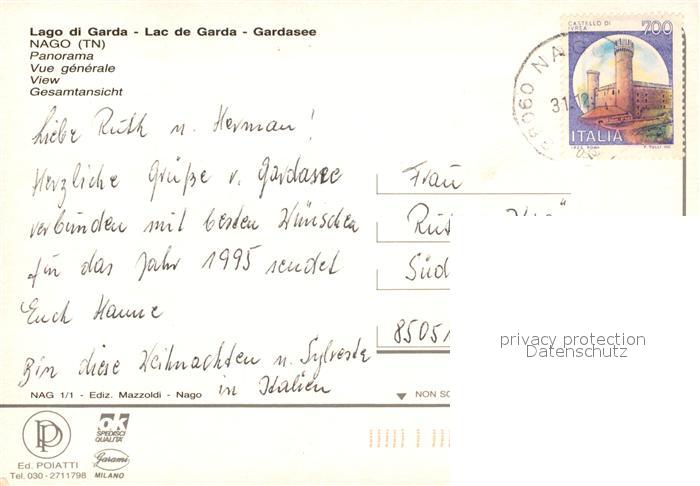 Lago di Garda - Lac de Garda - Gardasee
NAGO (TN)
Panorama
Vue générale
View
Gesamtansicht
CASTELLO DI
IVREA
700
ITALIA
38060 NAG
31.12.
Liebe Ruth u. Herman!
Herzliche Grüße v. Gardasee
verbunden mit besten Wünschen
für das Jahr 1995 sendet
Euch Hanne
Bin diese Weihnachten u. Sylvester
in Italien
Frau
Süd
8505
privacy protection
Datenschutz
NAG 1/1 - Ediz. Mazzoldi - Nago
NON SC
Ed. POIATTI
Tel. 030 - 2711798
OK
SPEDISCI
QUALITA'
Garami
MILANO